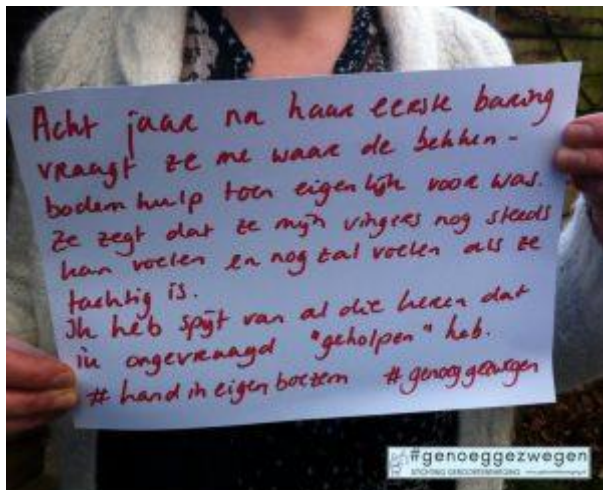 Acht jaar na haar eerste baring
vraagt ze me waar de bekken-
bodemhulp toen eigenlijk voor was.
Ze zegt dat ze mijn vingers nog steeds
kan voelen en nog zal voelen als ze
tachtig is.
Ik heb spijt van al die keren dat
ik ongevraagd "geholpen" heb.
# hand in eigen boezem # genoeg gezwegen
#genoeggezwegen
STICHTING GEBOORTEBEWEGING